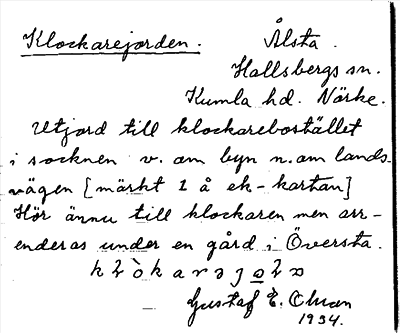 Klockarejorden. Ålsta.
Hallsbergs sn.
Kumla hd. Närke.
Utjord till klockarebostället
i socknen v. om byn n. om lands-
vägen [märkt 1 å ek-kartan]
Hör ännu till klockaren men arr-
enderas under en gård i Översta.
Gustaf E. Ohman
1934.